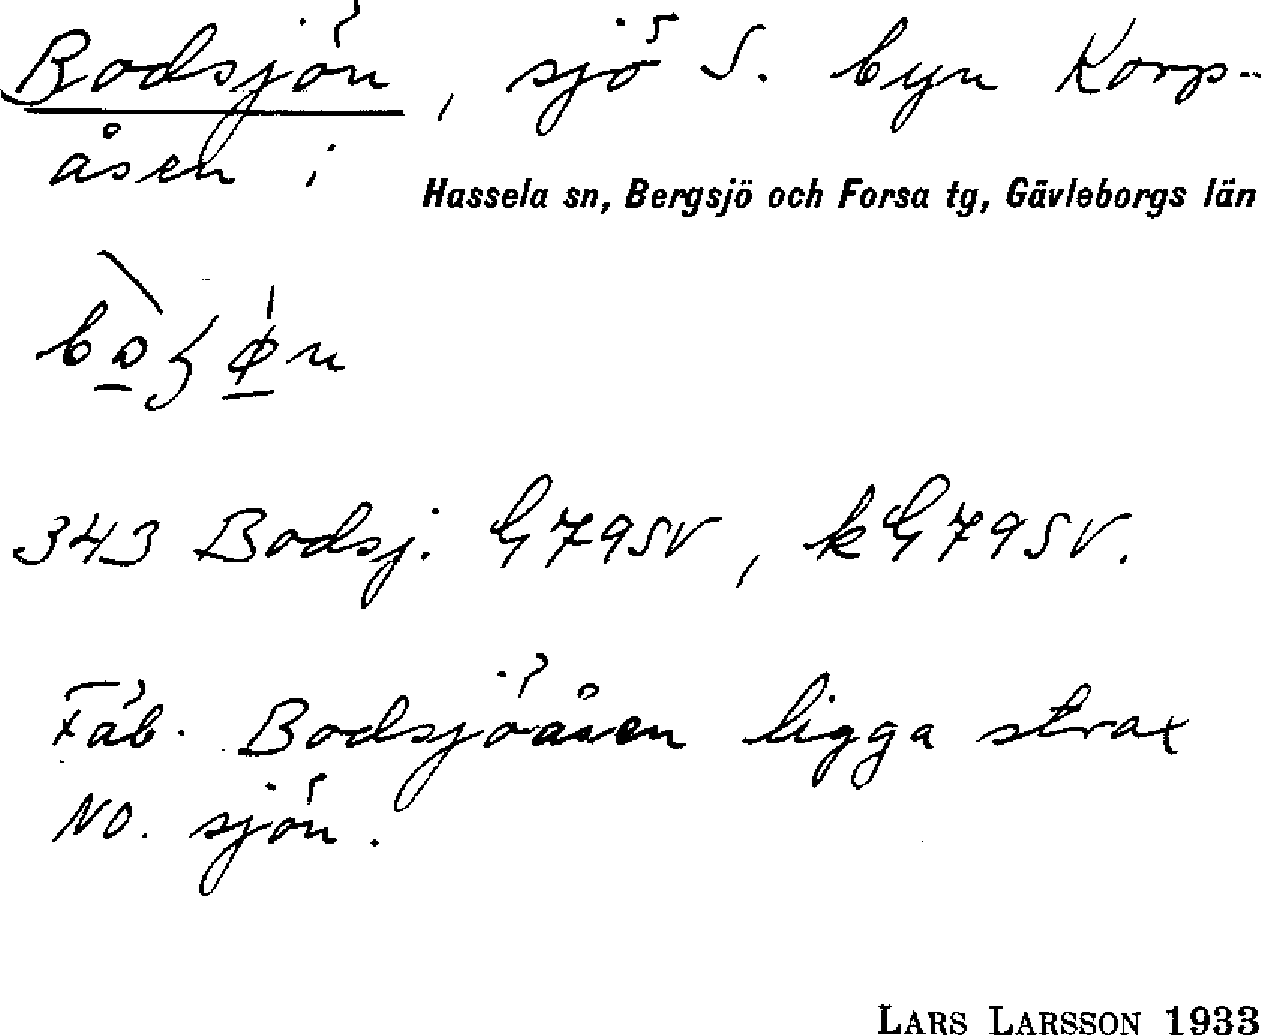 Bodsjön, sjö S. byn Korp-
åsen i
Hassela sn, Bergsjö och Forsa tg, Gävleborgs län
343 Bodsj. G79SV, kG79SV.
Fäb. Bodsjöåsen ligga strax
NO. sjön.
LARS LARSSON 1933